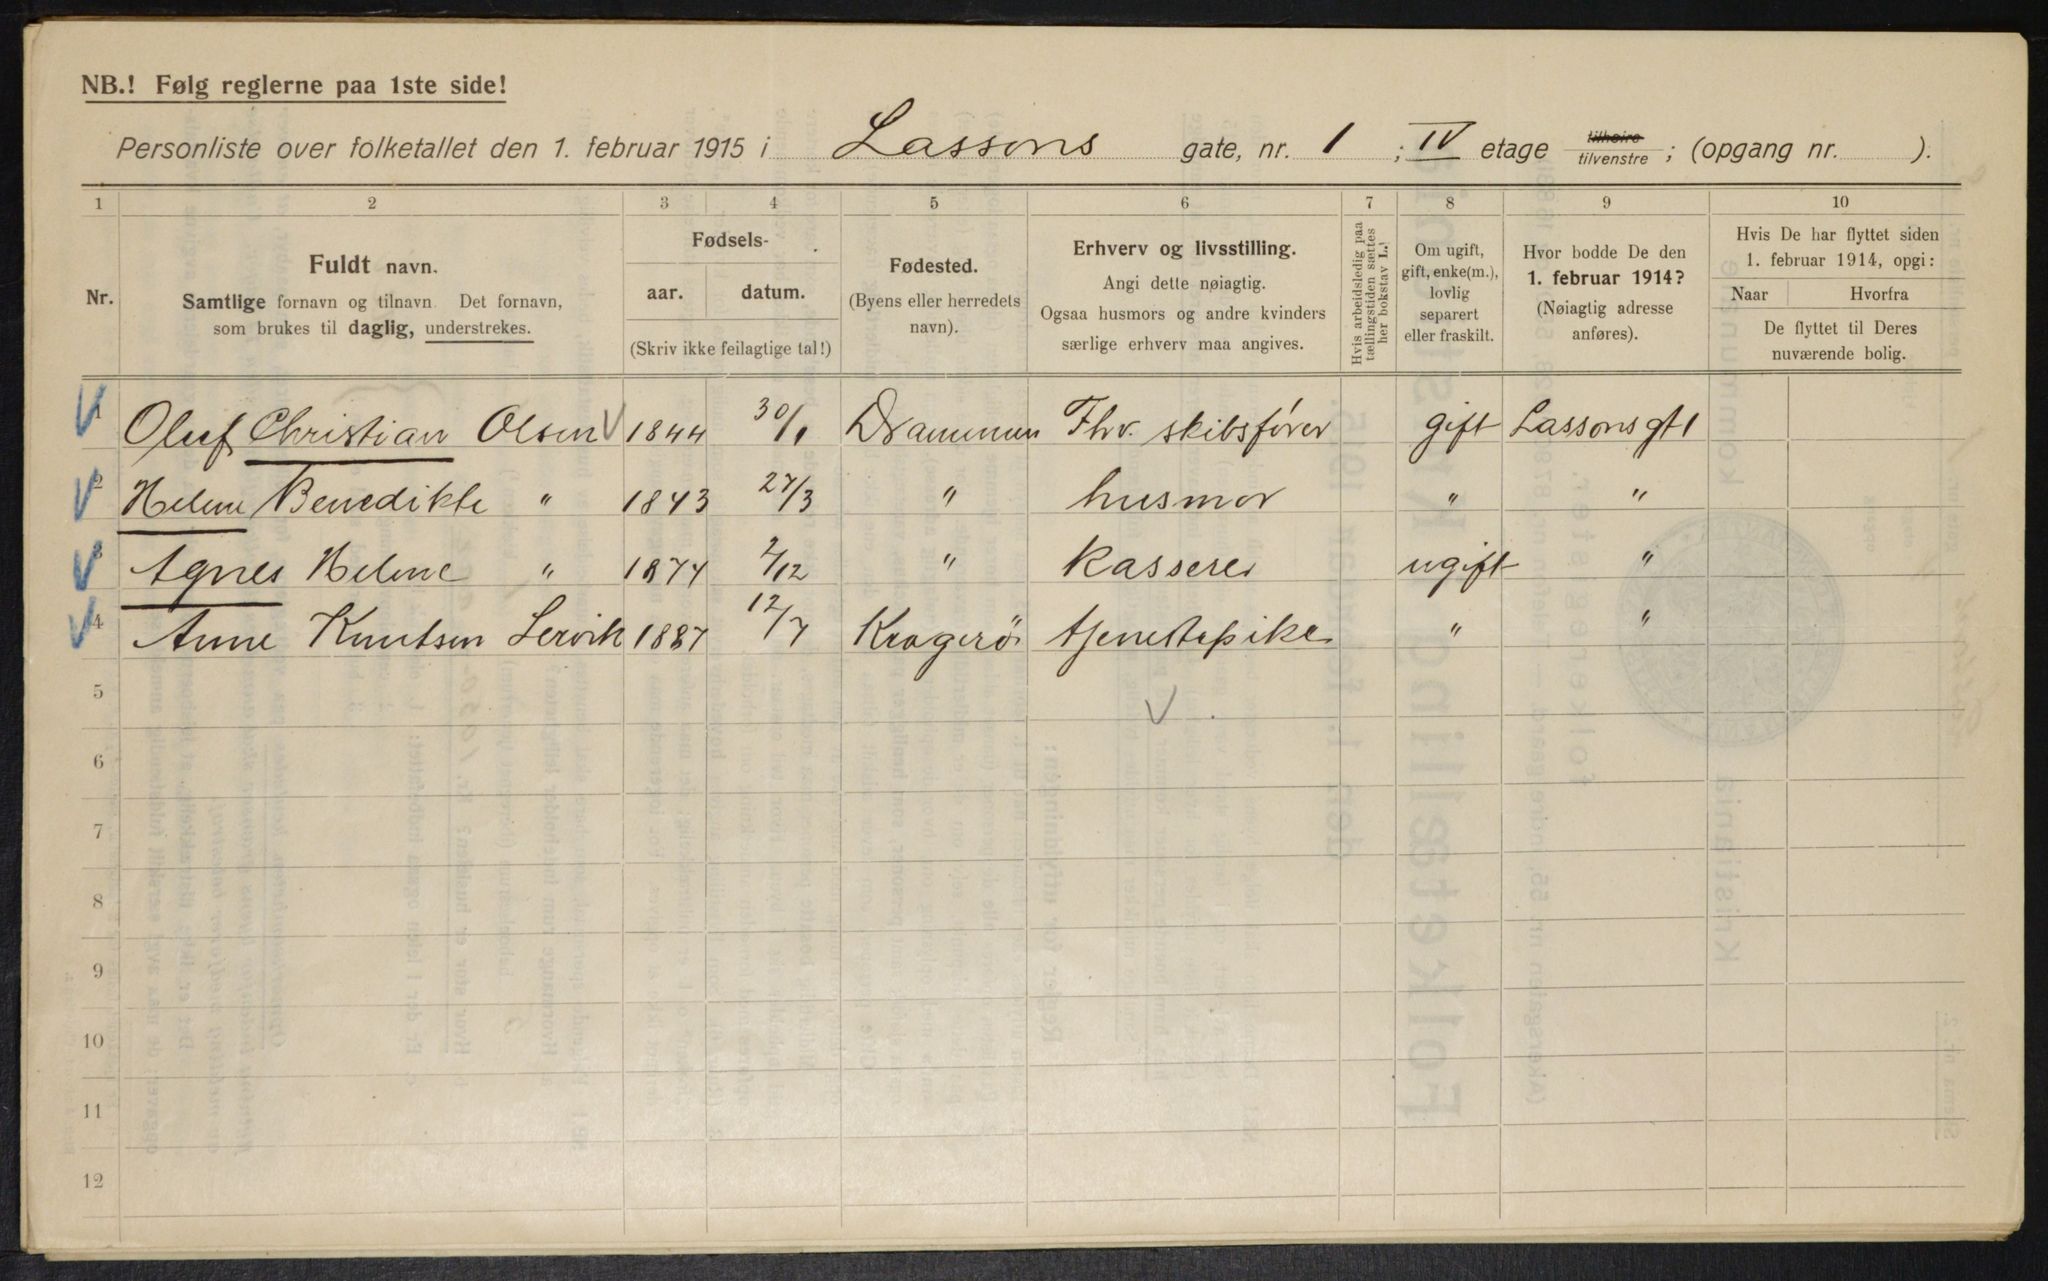 NB.! Følg reglerne paa 1ste side!
Personliste over folketallet den 1. februar 1915 i Lassons gate, nr. 1 ; IV etage tilhøire tilvenstre ; (opgang nr. ).
1 2 3 4 5 6 7 8 9 10
Nr.
Fuldt navn.
Samtlige fornavn og tilnavn. Det fornavn,
som brukes til daglig, understrekes.
Fødsels-
aar. datum.
(Skriv ikke feilagtige tal!)
Fødested.
(Byens eller herredets
navn).
Erhverv og livsstilling.
Angi dette nøiagtig.
Ogsaa husmors og andre kvinders
særlige erhverv maa angives.
Hvis arbeidsledig paa
tællingstiden sættes
her bokstav L.
Om ugift,
gift, enke(m.),
lovlig
separert
eller fraskilt.
Hvor bodde De den
1. februar 1914?
(Nøiagtig adresse
anføres).
Hvis De har flyttet siden
1. februar 1914, opgi:
Naar Hvorfra
De flyttet til Deres
nuværende bolig.
1 Oluf Christian Olsen 1844 30/1 Drammen Fhv. skibsfører gift Lassons gt 1
2 Helene Benedikte " 1843 27/3 " husmor " "
3 Agnes Helene " 1874 2/12 " kassere ugift "
4 Anne Knutsen Lervik 1887 12/7 Kragerö tjenestepike " "
5
6
7
8
9
10
11
12